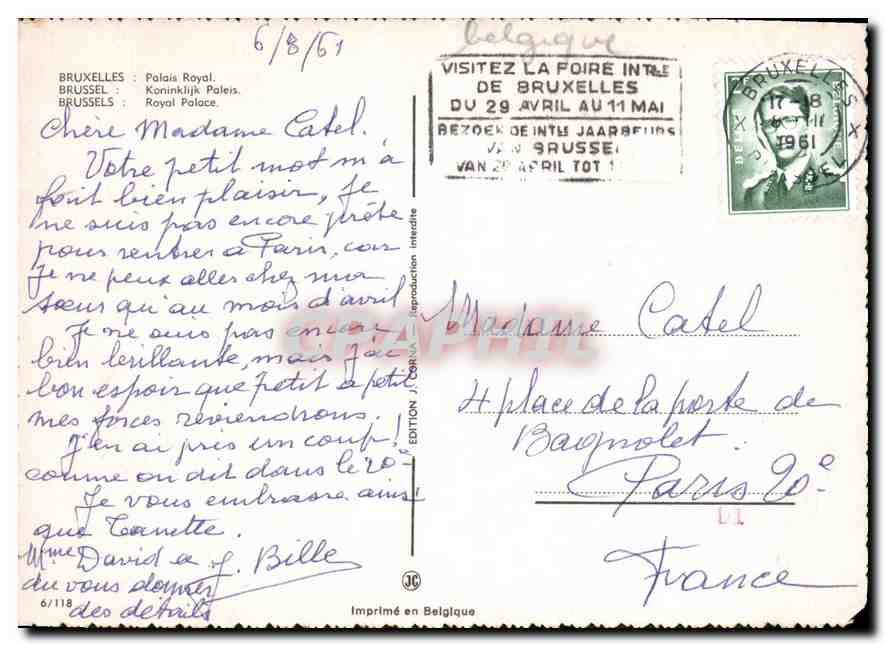 6/8/61
belgique
BRUXELLES : Palais Royal.
BRUSSEL : Koninklijk Paleis.
BRUSSELS : Royal Palace.
VISITEZ LA FOIRE INTLE
DE BRUXELLES
DU 29 AVRIL AU 11 MAI
BEZOEK DE INTLE JAARBEURS
VAN BRUSSEL
VAN 29 APRIL TOT
BRUXELLES X
17-18
1961
Chère Madame Catel.
Votre petit mot m'a
fait bien plaisir, Je
ne suis pas encore prête
pour rentrer à Paris, car
Je ne peux aller chez ma
sœur qu'au mois d'avril
Je ne suis pas encore
bien brillante, mais J'ai
bon espoir que petit à petit
mes forces reviendrons.
J'en ai pris un coup!
comme on dit dans le 20e
Je vous embrasse ainsi
que Tanette.
Mme David a J. Bille
du vous donner
des détails
6/118
EDITION J. CORNA Reproduction interdite
JC
Imprimé en Belgique
CARAPHIL
Madame Catel
4 place de la porte de
Bagnolet.
Paris 20e
D1
France